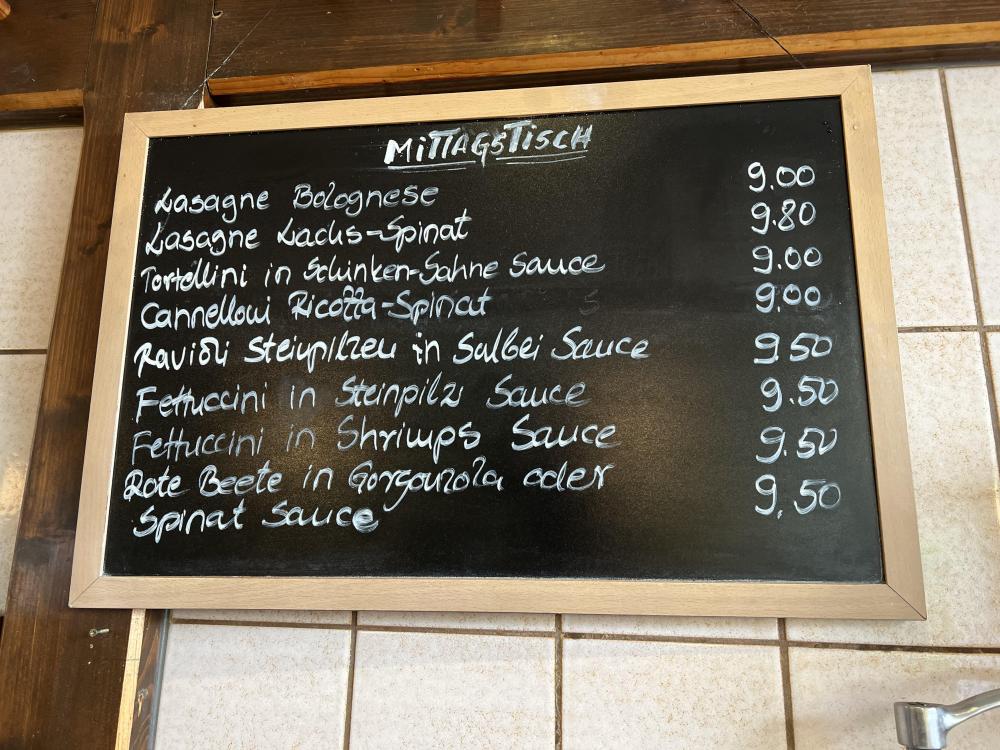 MITTAGSTISCH
Lasagne Bolognese 9.00
Lasagne Lachs-Spinat 9.80
Tortellini in Schinken-Sahne Sauce 9.00
Cannelloni Ricotta-Spinat 9.00
Ravioli Steinpilzen in Salbei Sauce 9.50
Fettuccini in Steinpilz Sauce 9.50
Fettuccini in Shrimps Sauce 9.50
Rote Beete in Gorgonzola oder
Spinat Sauce 9.50